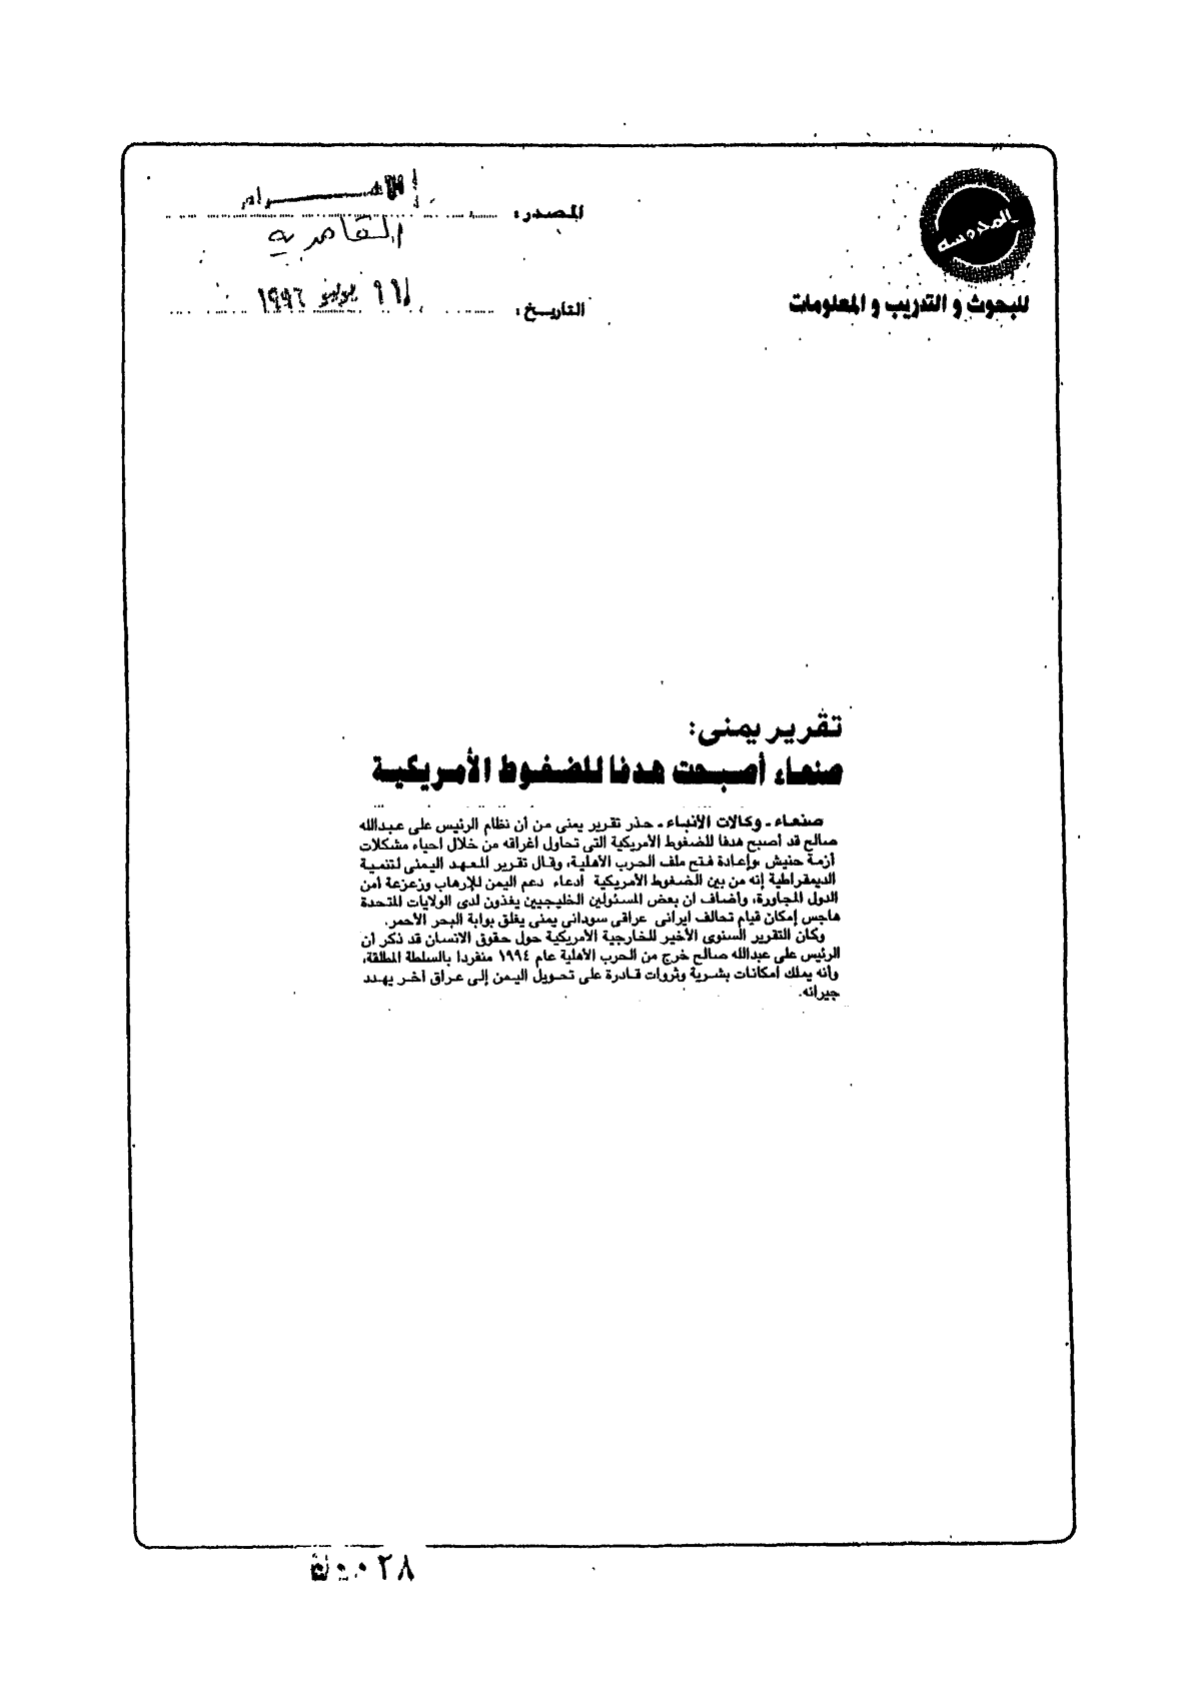 المدرسه
للبحوث و التدريب و المعلومات
المصدر: الأهرام
القاهرية
التاريخ: يونيو ١٩٩٦
تقرير يمنى:
صنعاء أصبحت هدفا للضغوط الأمريكية
صنعاء ـ وكالات الأنباء ـ حذر تقرير يمنى من أن نظام الرئيس على عبدالله
صالح قد أصبح هدفا للضغوط الأمريكية التى تحاول اغراقه من خلال احياء مشكلات
أزمة حنيش وإعادة فتح ملف الحرب الأهلية، وقال تقرير للمعهد اليمنى لتنمية
الديمقراطية إنه من بين الضغوط الأمريكية ادعاء دعم اليمن للإرهاب وزعزعة أمن
الدول المجاورة، وأضاف أن بعض المسئولين الخليجيين يغذون لدى الولايات المتحدة
هاجس إمكان قيام تحالف ايرانى عراقى سودانى يمنى يغلق بوابة البحر الأحمر.
وكان التقرير السنوى الأخير للخارجية الأمريكية حول حقوق الانسان قد ذكر أن
الرئيس على عبدالله صالح خرج من الحرب الأهلية عام ١٩٩٤ منفردا بالسلطة المطلقة،
وأنه يملك امكانات بشرية وثروات قادرة على تحويل اليمن إلى عراق اخر يهدد
جيرانه.